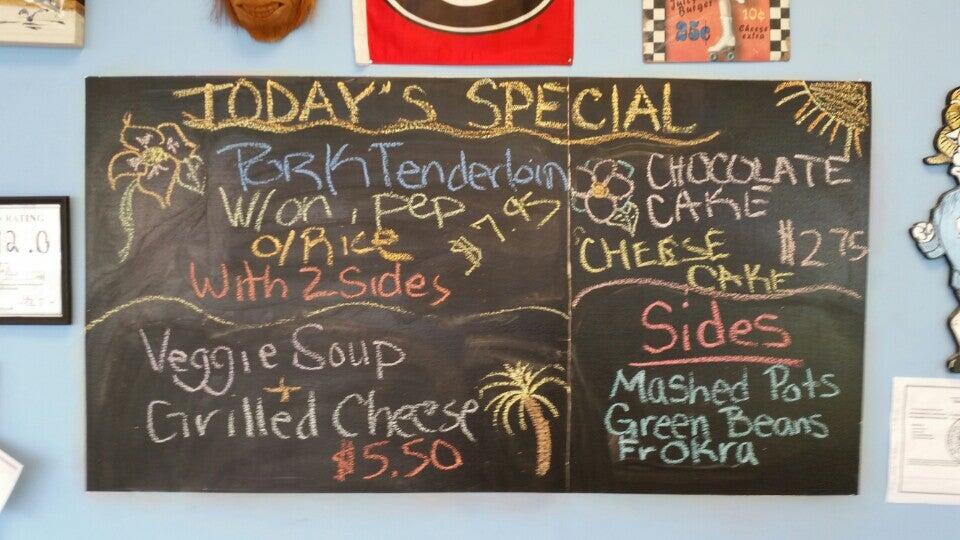 TODAY'S SPECIAL
Pork Tenderloin
W/on, pep
$7.95
O/Rice
With 2 Sides
Veggie Soup
+
Grilled Cheese
$5.50
CHOCOLATE
CAKE
$2.75
CHEESE
CAKE
Sides
Mashed Pots
Green Beans
Fr Okra
Burger
25¢
10¢
Cheese
extra
RATING
12.0